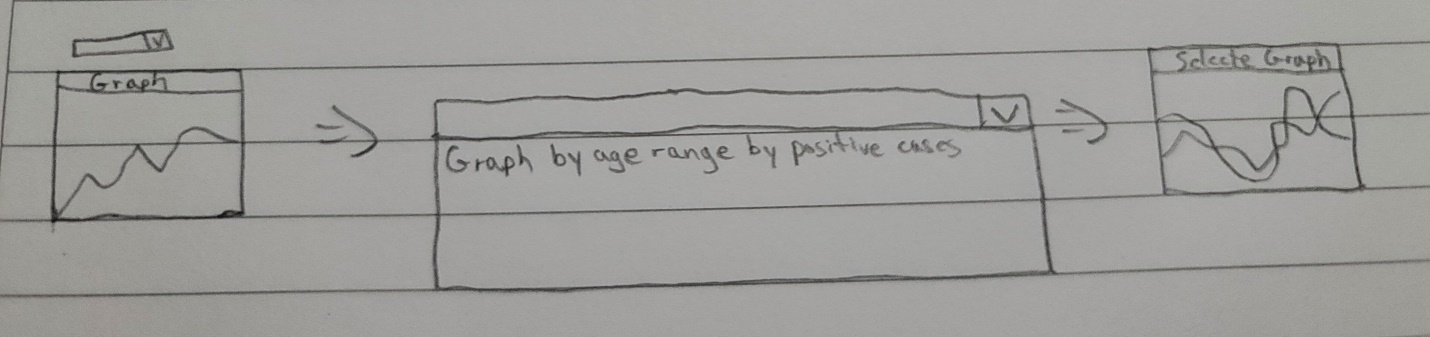 Graph
Graph by age range by positive cases
Selecte Graph